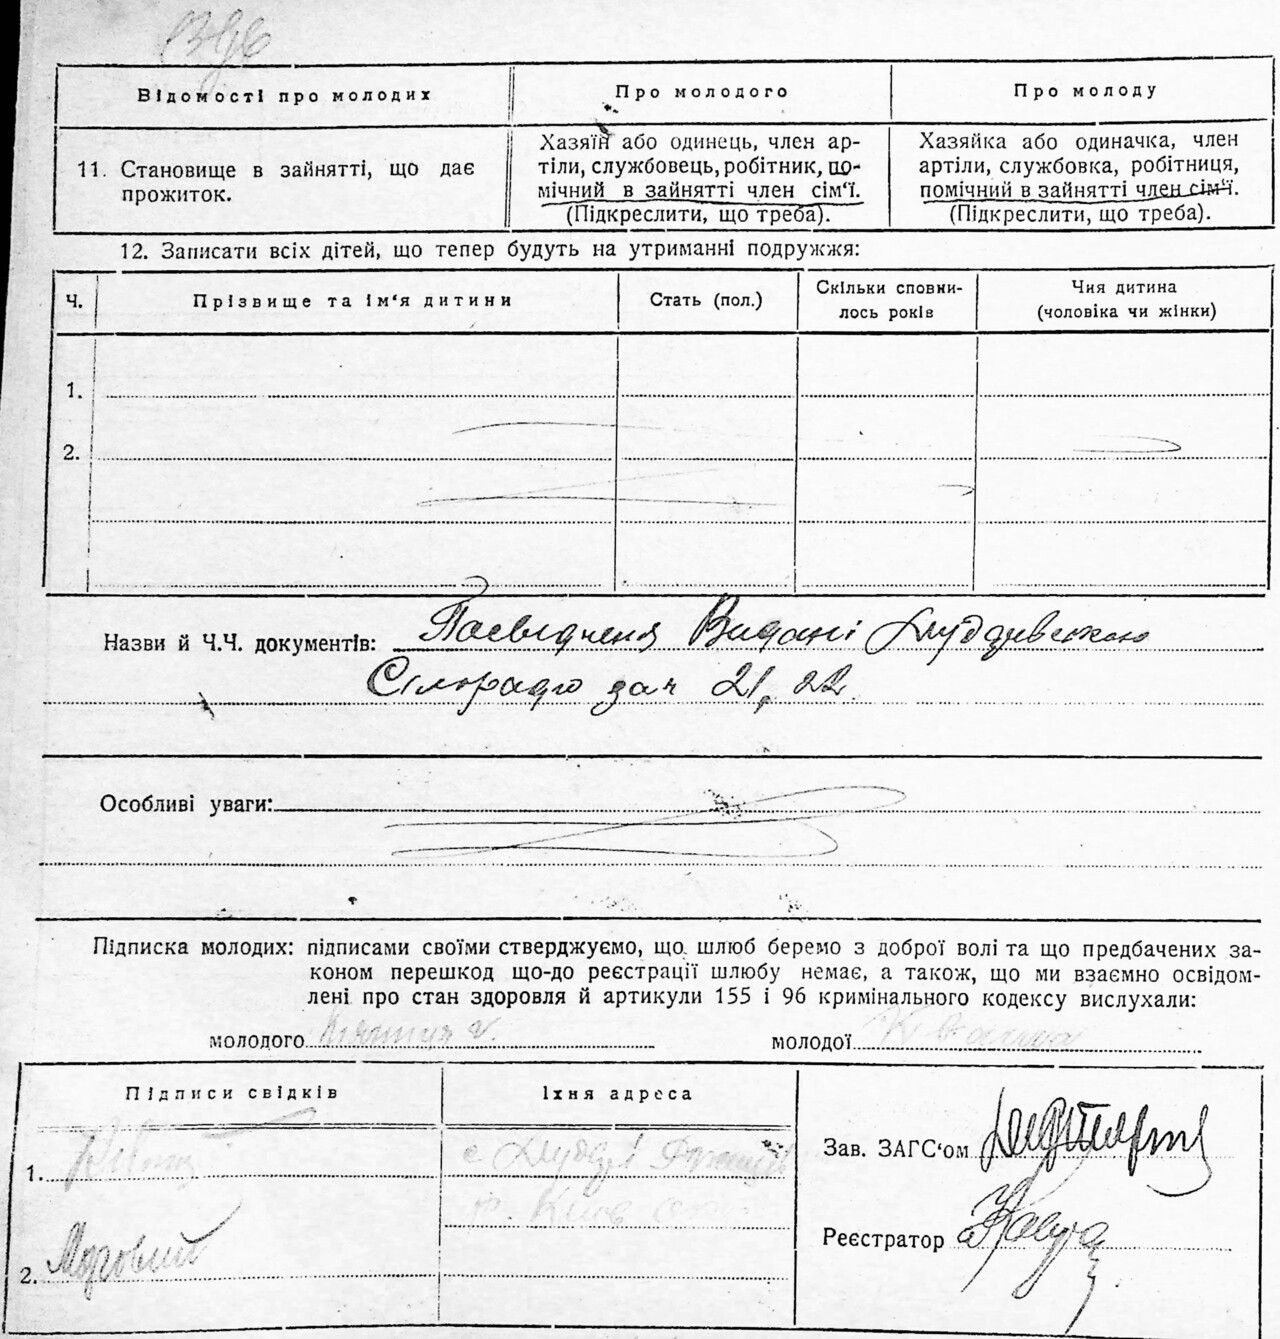 Відомості про молодих
Про молодого
Про молоду
11. Становище в зайнятті, що дає
прожиток.
Хазяїн або одинець, член ар-
тіли, службовець, робітник, по-
мічний в зайнятті член сім‘ї.
(Підкреслити, що треба).
Хазяйка або одиначка, член
артіли, службовка, робітниця,
помічний в зайнятті член сім‘ї.
(Підкреслити, що треба).
12. Записати всіх дітей, що тепер будуть на утриманні подружжя:
Ч.
Прізвище та ім‘я дитини
Стать (пол.)
Скільки сповни-
лось років
Чия дитина
(чоловіка чи жінки)
1.
2.
Назви й Ч.Ч. документів: Посвідченя Видані
Сілорадю за ч 21, 22
Особливі уваги:
Підписка молодих: підписами своїми стверджуємо, що шлюб беремо з доброї волі та що предбачених за-
коном перешкод що-до реєстрації шлюбу немає, а також, що ми взаємно освідом-
лені про стан здоровля й артикули 155 і 96 кримінального кодексу вислухали:
молодого
молодої
Підписи свідків
Їхня адреса
1.
с
Київ
2.
Зав. ЗАГС‘ом
Реєстратор